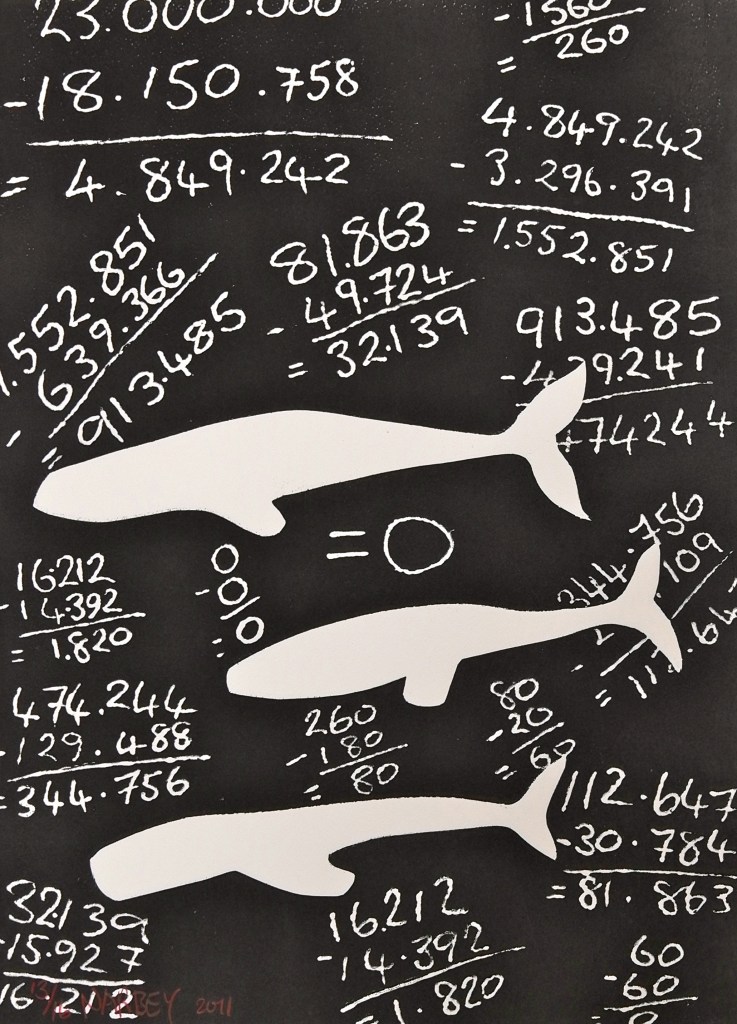 23.000.000
-18.150.758
= 4.849.242
-1560
260
=
4.849.242
- 3.296.391
= 1.552.851
1.552.851
- 639.366
= 913.485
81.863
- 49.724
= 32.139
913.485
9.241
474244
= 0
16.212
-14.392
= 1.820
0
-0
= 0
344.756
109
=
474.244
-129.488
=344.756
260
-180
= 80
80
-20
= 60
112.647
-30.784
= 81.863
32.139
-15.927
16.212
16.212
-14.392
=1.820
60
-60
0
13/16 WARBEY 2011